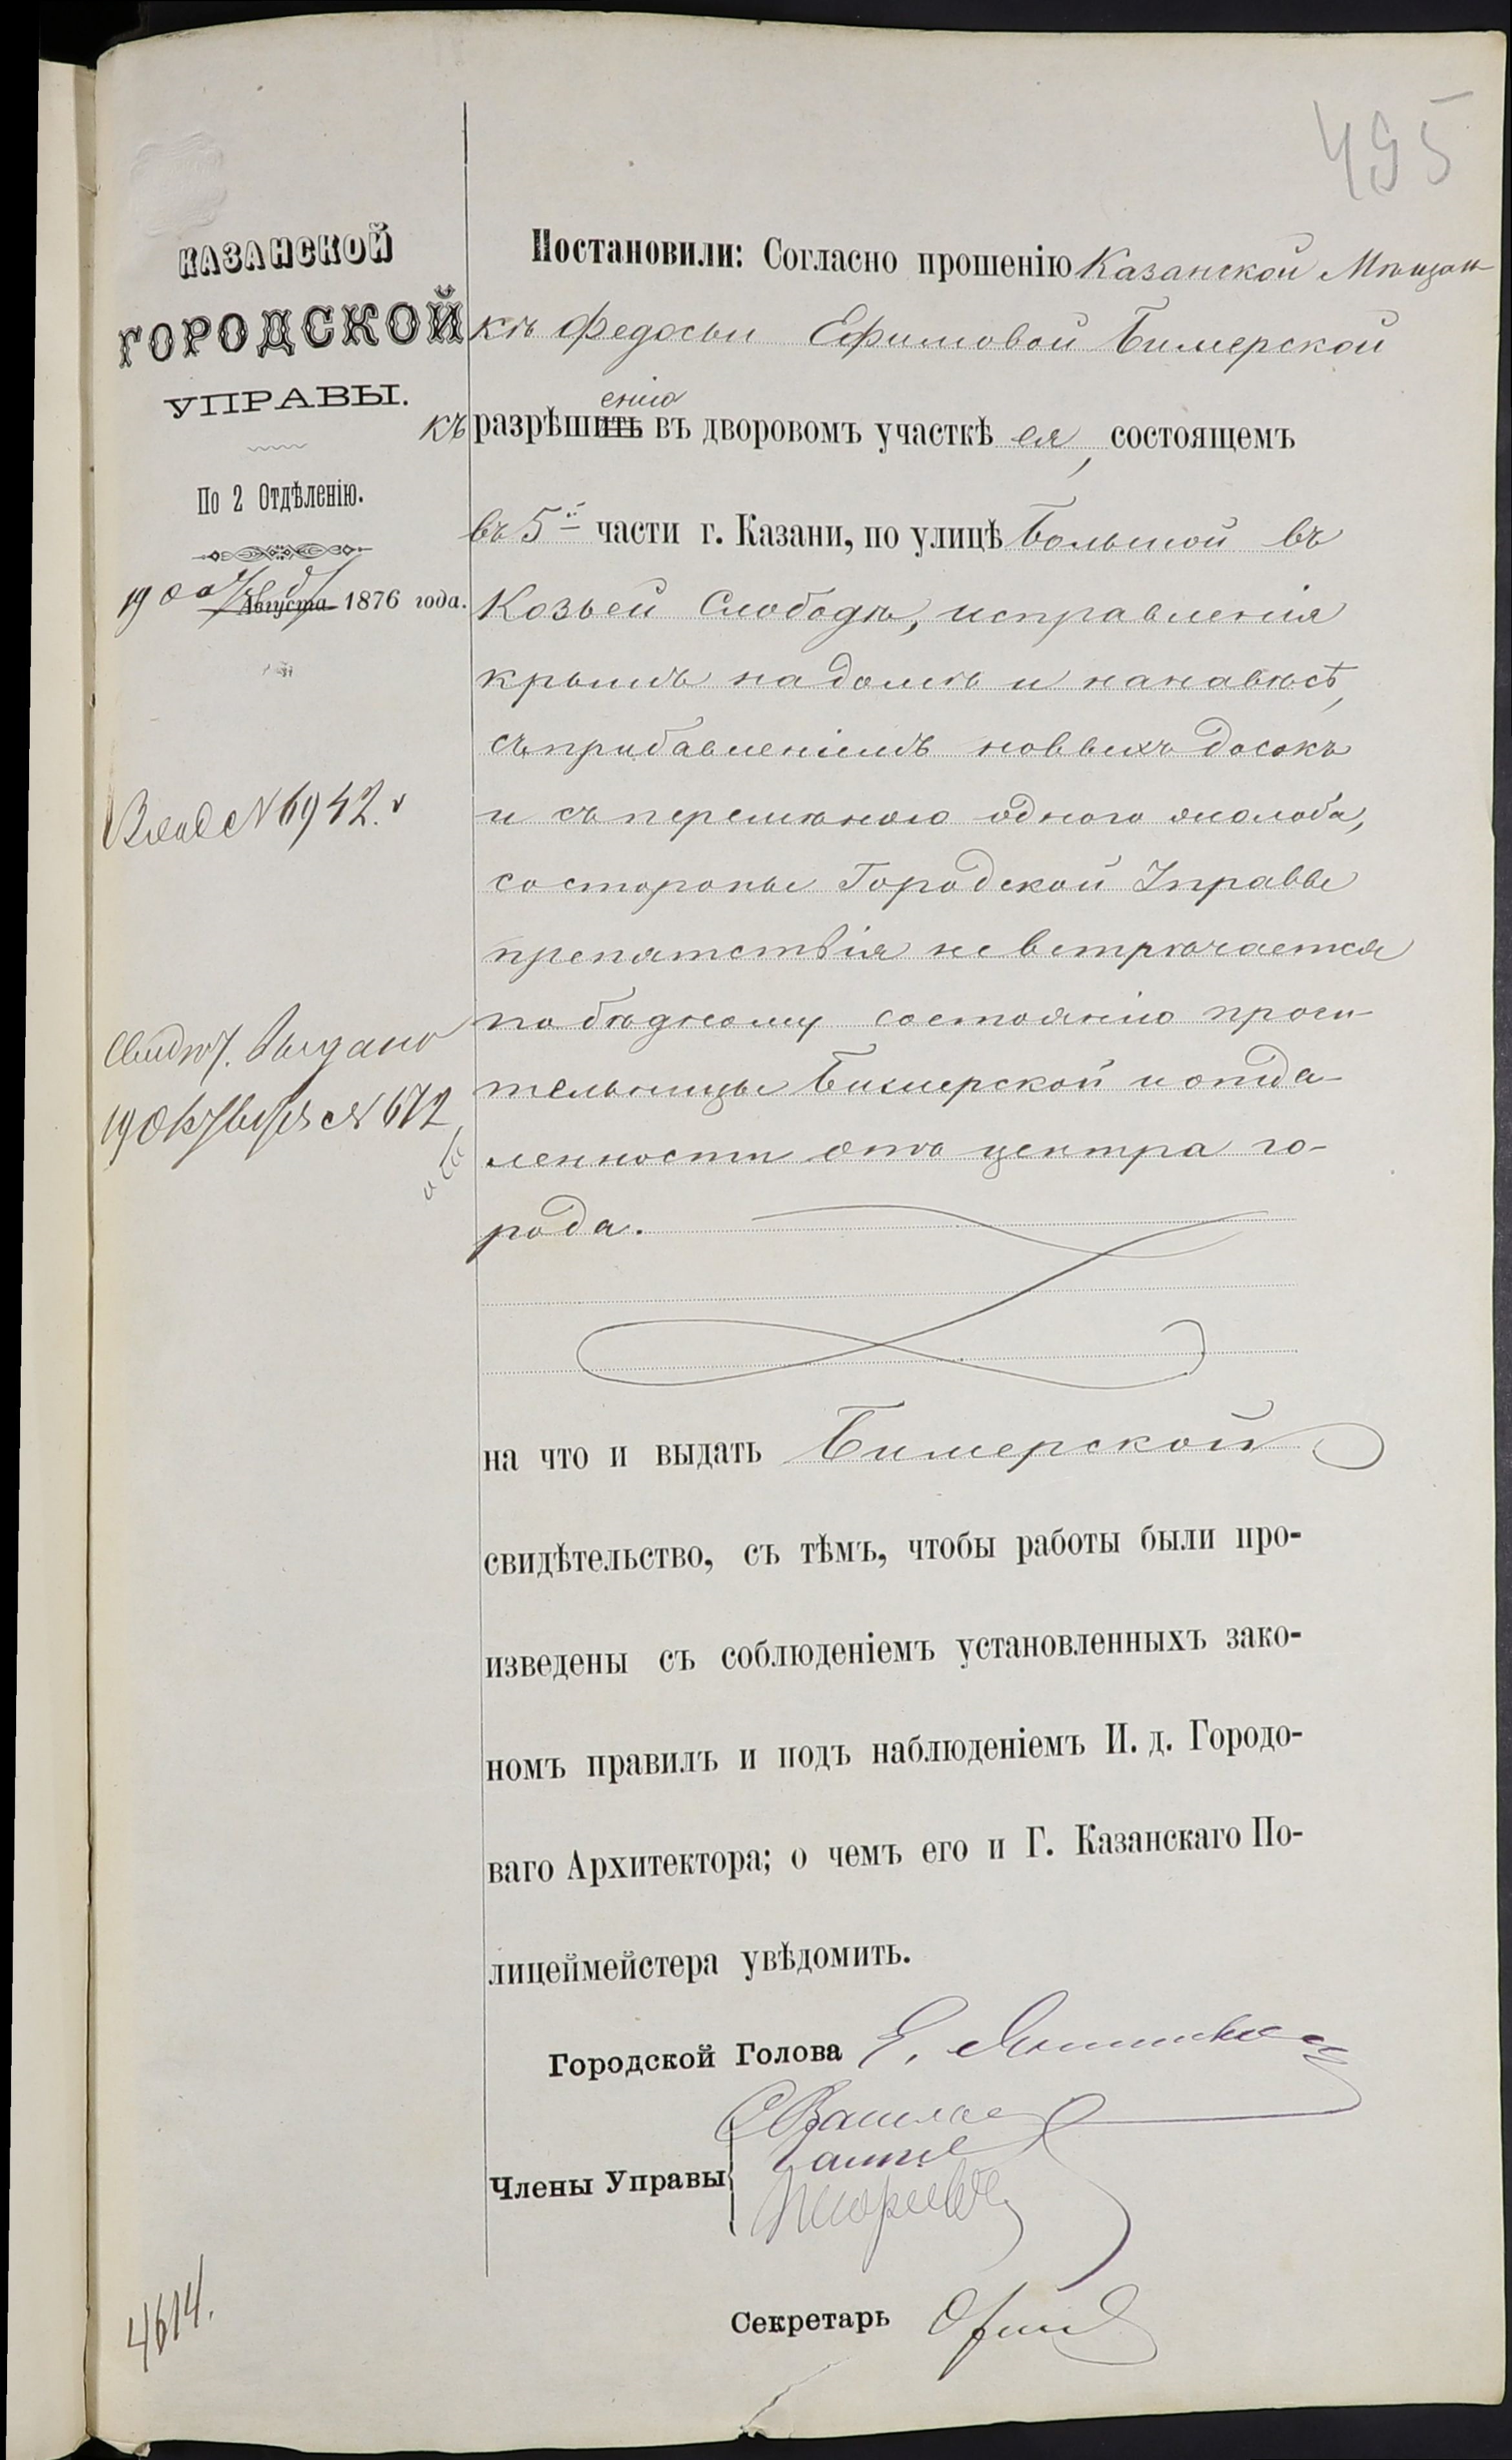 495
КАЗАНСКОЙ
ГОРОДСКОЙ
УПРАВЫ.
По 2 Отдѣленію.
19 Августа 1876 года.
Вход № 6942.
Свидѣт. Выдано
19 Октября № 672
4614.
Постановили: Согласно прошенію Казанской Мѣщан
кѣ Федосьи Ефимовой Бимерской
къ разрѣшить енію въ дворовомъ участкѣ ея, состоящемъ
въ 5й части г. Казани, по улицѣ Большой въ
Козьей Слободѣ, исправленія
крышъ на домѣ и на навѣсѣ,
съ прибавленіемъ новыхъ досокъ
и съ перемѣною одного жолоба,
со стороны Городской Управы
препятствія не встрѣчается
по бѣдному состоянію проси-
тельницы Бимерской и отда-
ленности отъ центра го-
рода.
на что и выдать Бимерской
свидѣтельство, съ тѣмъ, чтобы работы были про-
изведены съ соблюденіемъ установленныхъ зако-
номъ правилъ и подъ наблюденіемъ И. д. Городо-
ваго Архитектора; о чемъ его и Г. Казанскаго По-
лицеймейстера увѣдомить.
Городской Голова Е.
Члены Управы
Секретарь